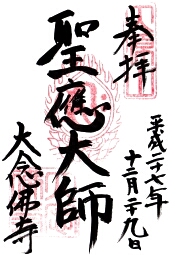 奉拝
平成二十七年
十二月二十九日
聖應大師
大念佛寺